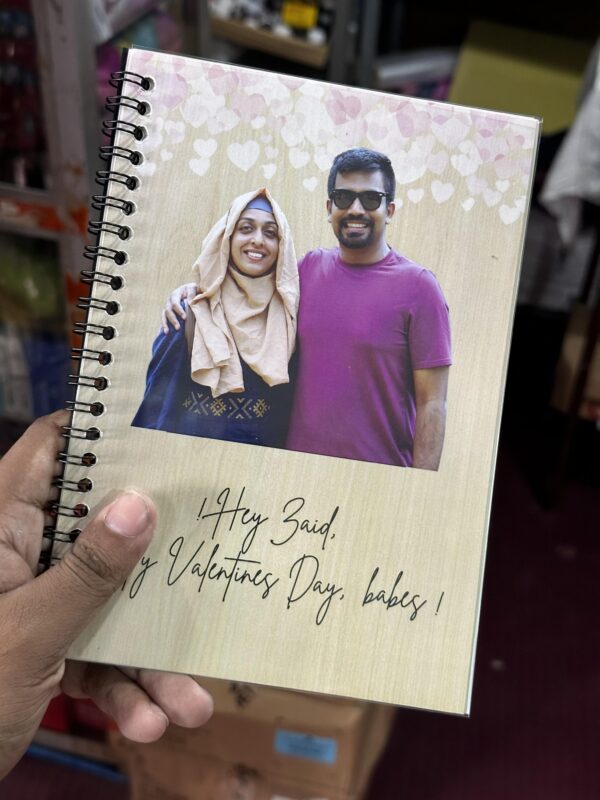 !Hey Zaid,
Valentines Day, babes!